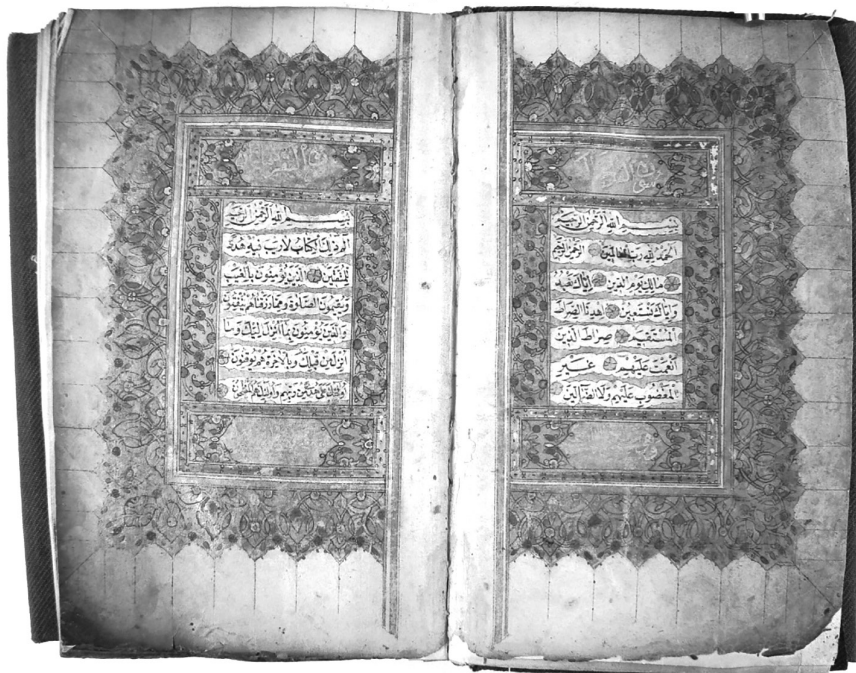 بسم الله الرحمن الرحيم
الحمد لله رب العالمين الرحمن الرحيم
مالك يوم الدين اياك نعبد
واياك نستعين اهدنا الصراط
المستقيم صراط الذين
انعمت عليهم غير
المغضوب عليهم ولا الضالين
بسم الله الرحمن الرحيم
الم ذلك الكتاب لا ريب فيه هدى
للمتقين الذين يؤمنون بالغيب
ويقيمون الصلوة ومما رزقناهم ينفقون
والذين يؤمنون بما انزل اليك وما
انزل من قبلك وبالاخرة هم يوقنون
اولئك على هدى من ربهم واولئك هم المفلحون